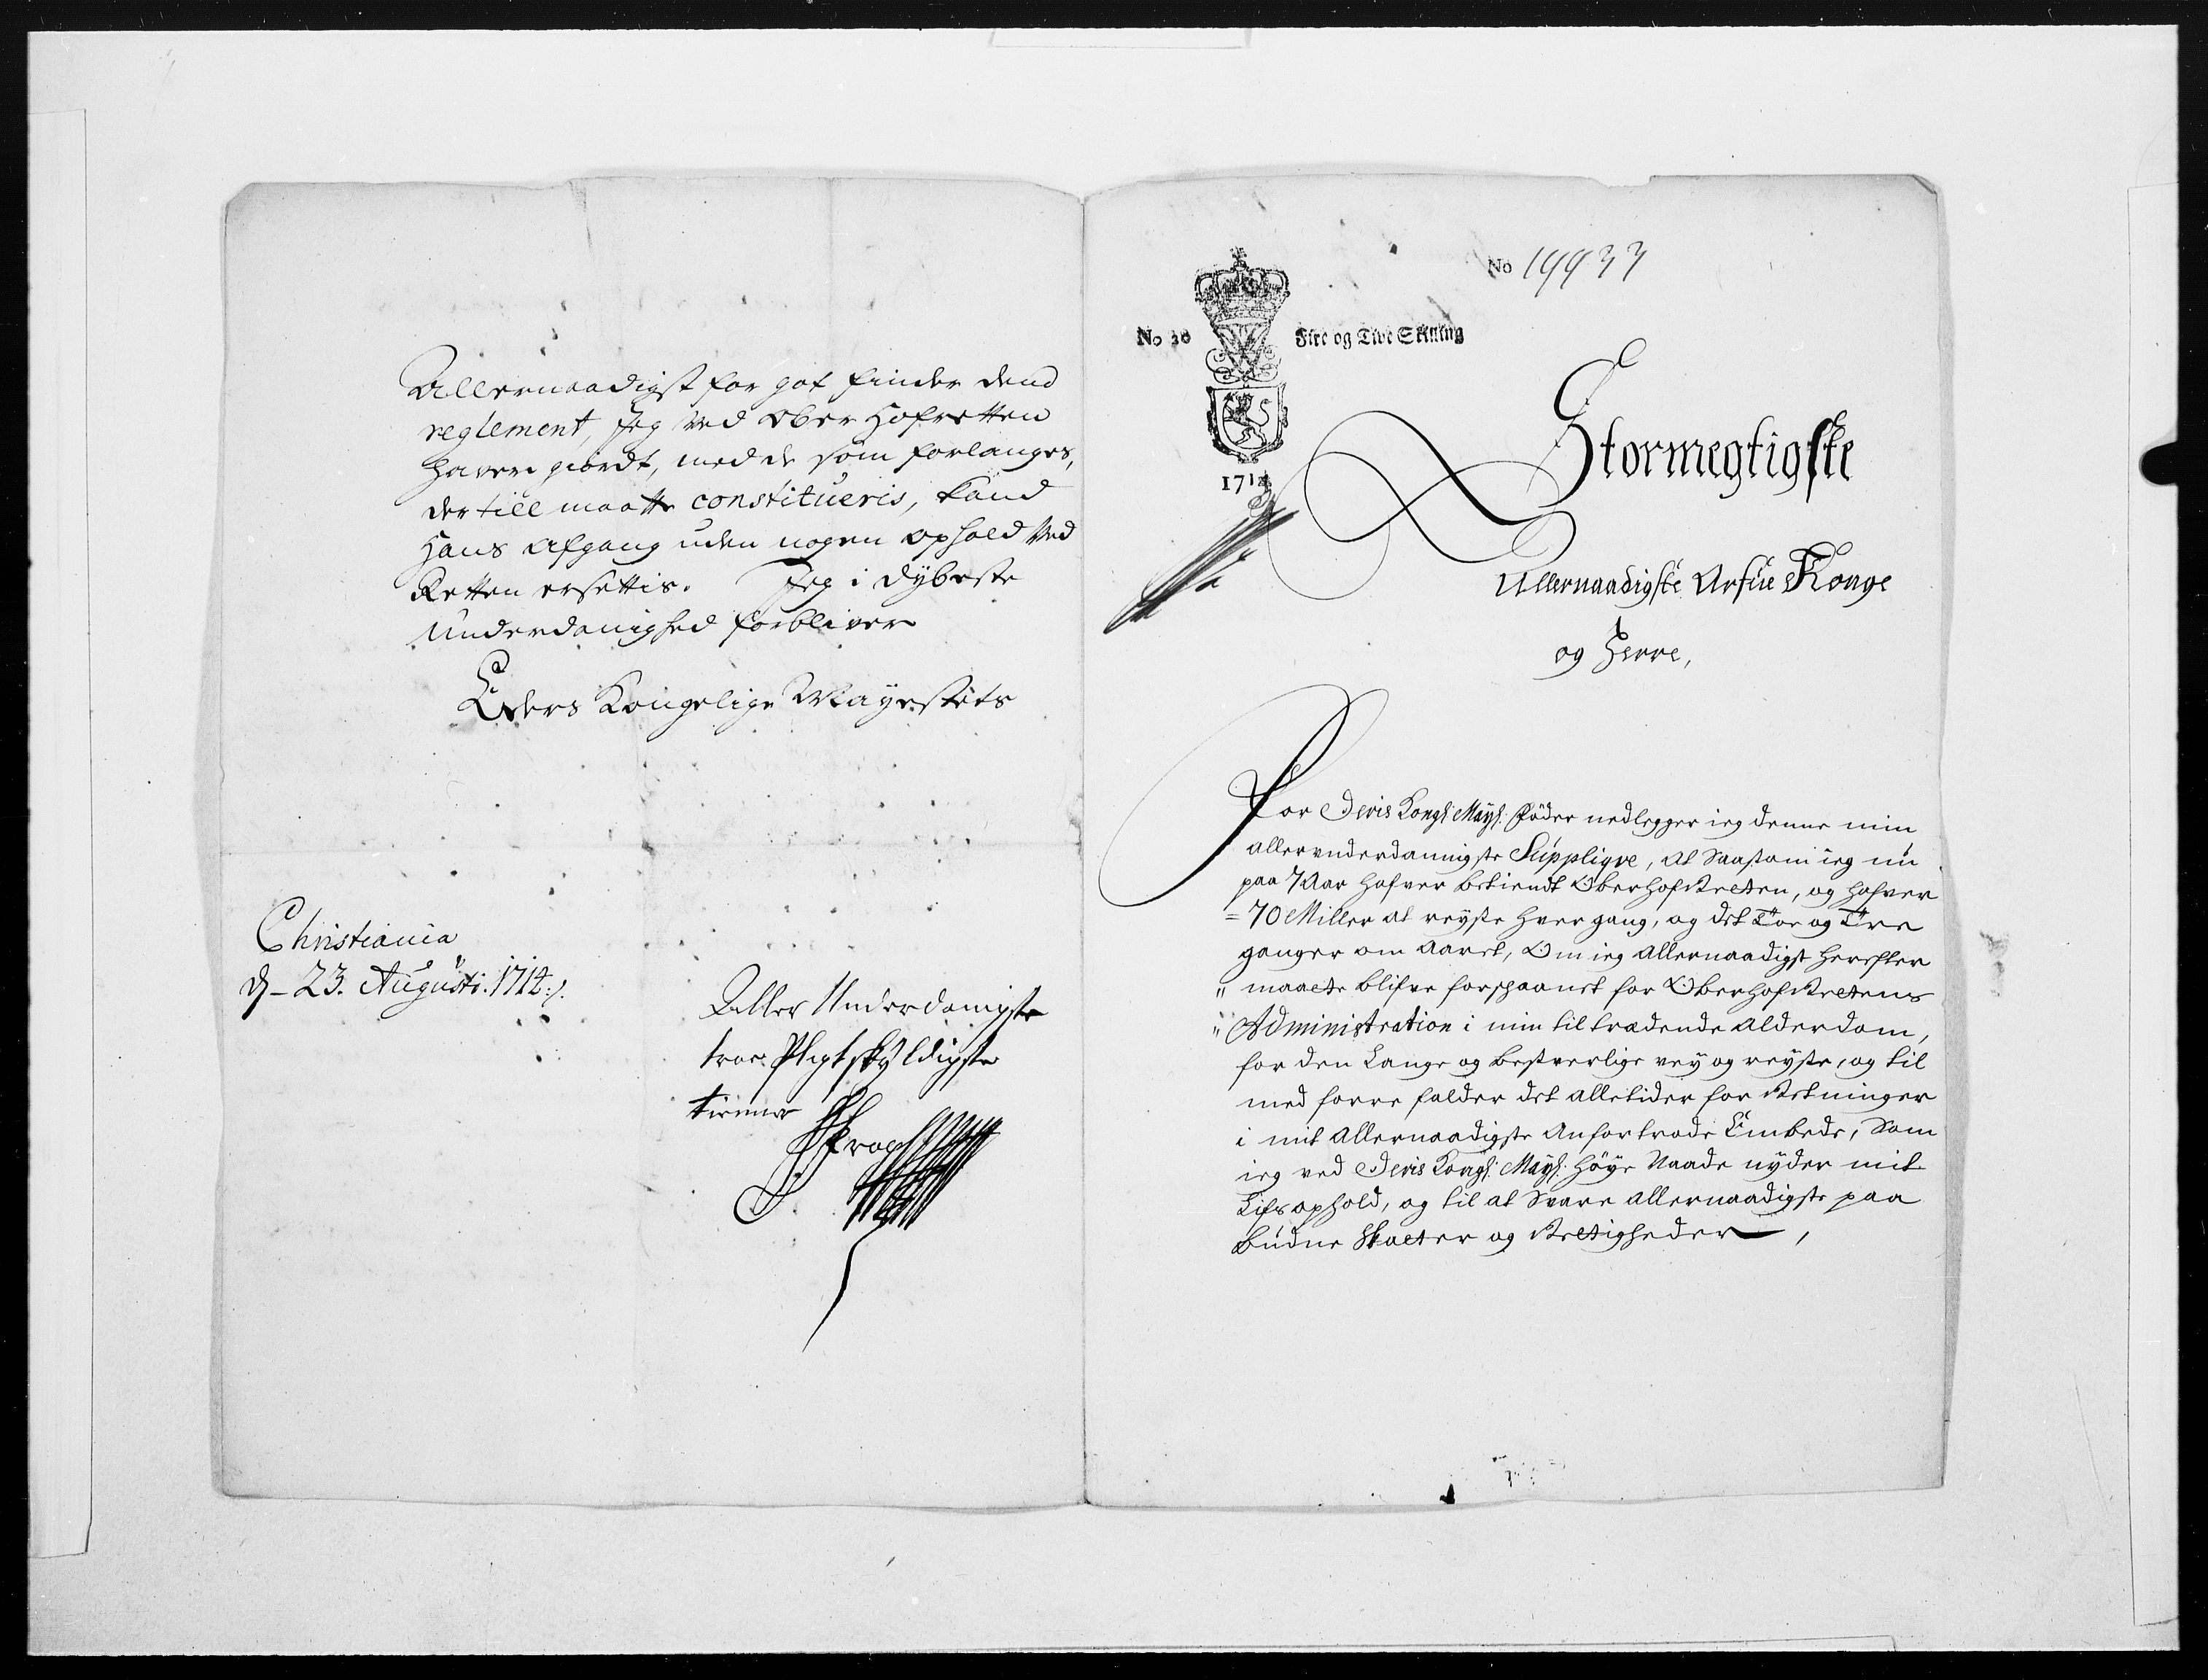 Allernaadigst for got finder dend
reglement, Jeg ved Ober Hofretten
haver giordt, med de som forlanges,
der till maatte constitueris, kand
Hans Afgang uden nogen ophold ved
Retten ersettis. Jeg i dÿbeste
Underdanighed forbliver
Eders Kongelige Mayestets
Christiania
d- 23. Augusti. 1714:/.
Aller Underdanigste
troe Pligtskÿldigste
tienner
No 19933
No 20
Fire og Tive Skilling
1714
Stormegtigste
Allernaadigste Arfue Konge
og Herre,
For Deris Kongl: Mayt: föder nedlegger ieg denne min
allerunderdannigste Supplique, at Saasom ieg nu
paa 7 Aar hafver betiendt OberhofRetten, og hafver
= 70 Miller at reyse hver gang, og det Toe og Tre
ganger om Aaret, Om ieg allernaadigst herefter
" maatte blifve forschaanet for OberhofRettens
" Administration i min tiltrædende alderdom,
for den Lange og besverlige vey og reyse, og til
med forre falder det alletider for Retninger
i mit Allernaadigste Anfortrode Embede, Som
ieg ved Deris Kongl: Mayt: höye Naade nyder mit
Lifs ophold, og til at Svare allernaadigste paa
budne Skatter og Rettigheder,